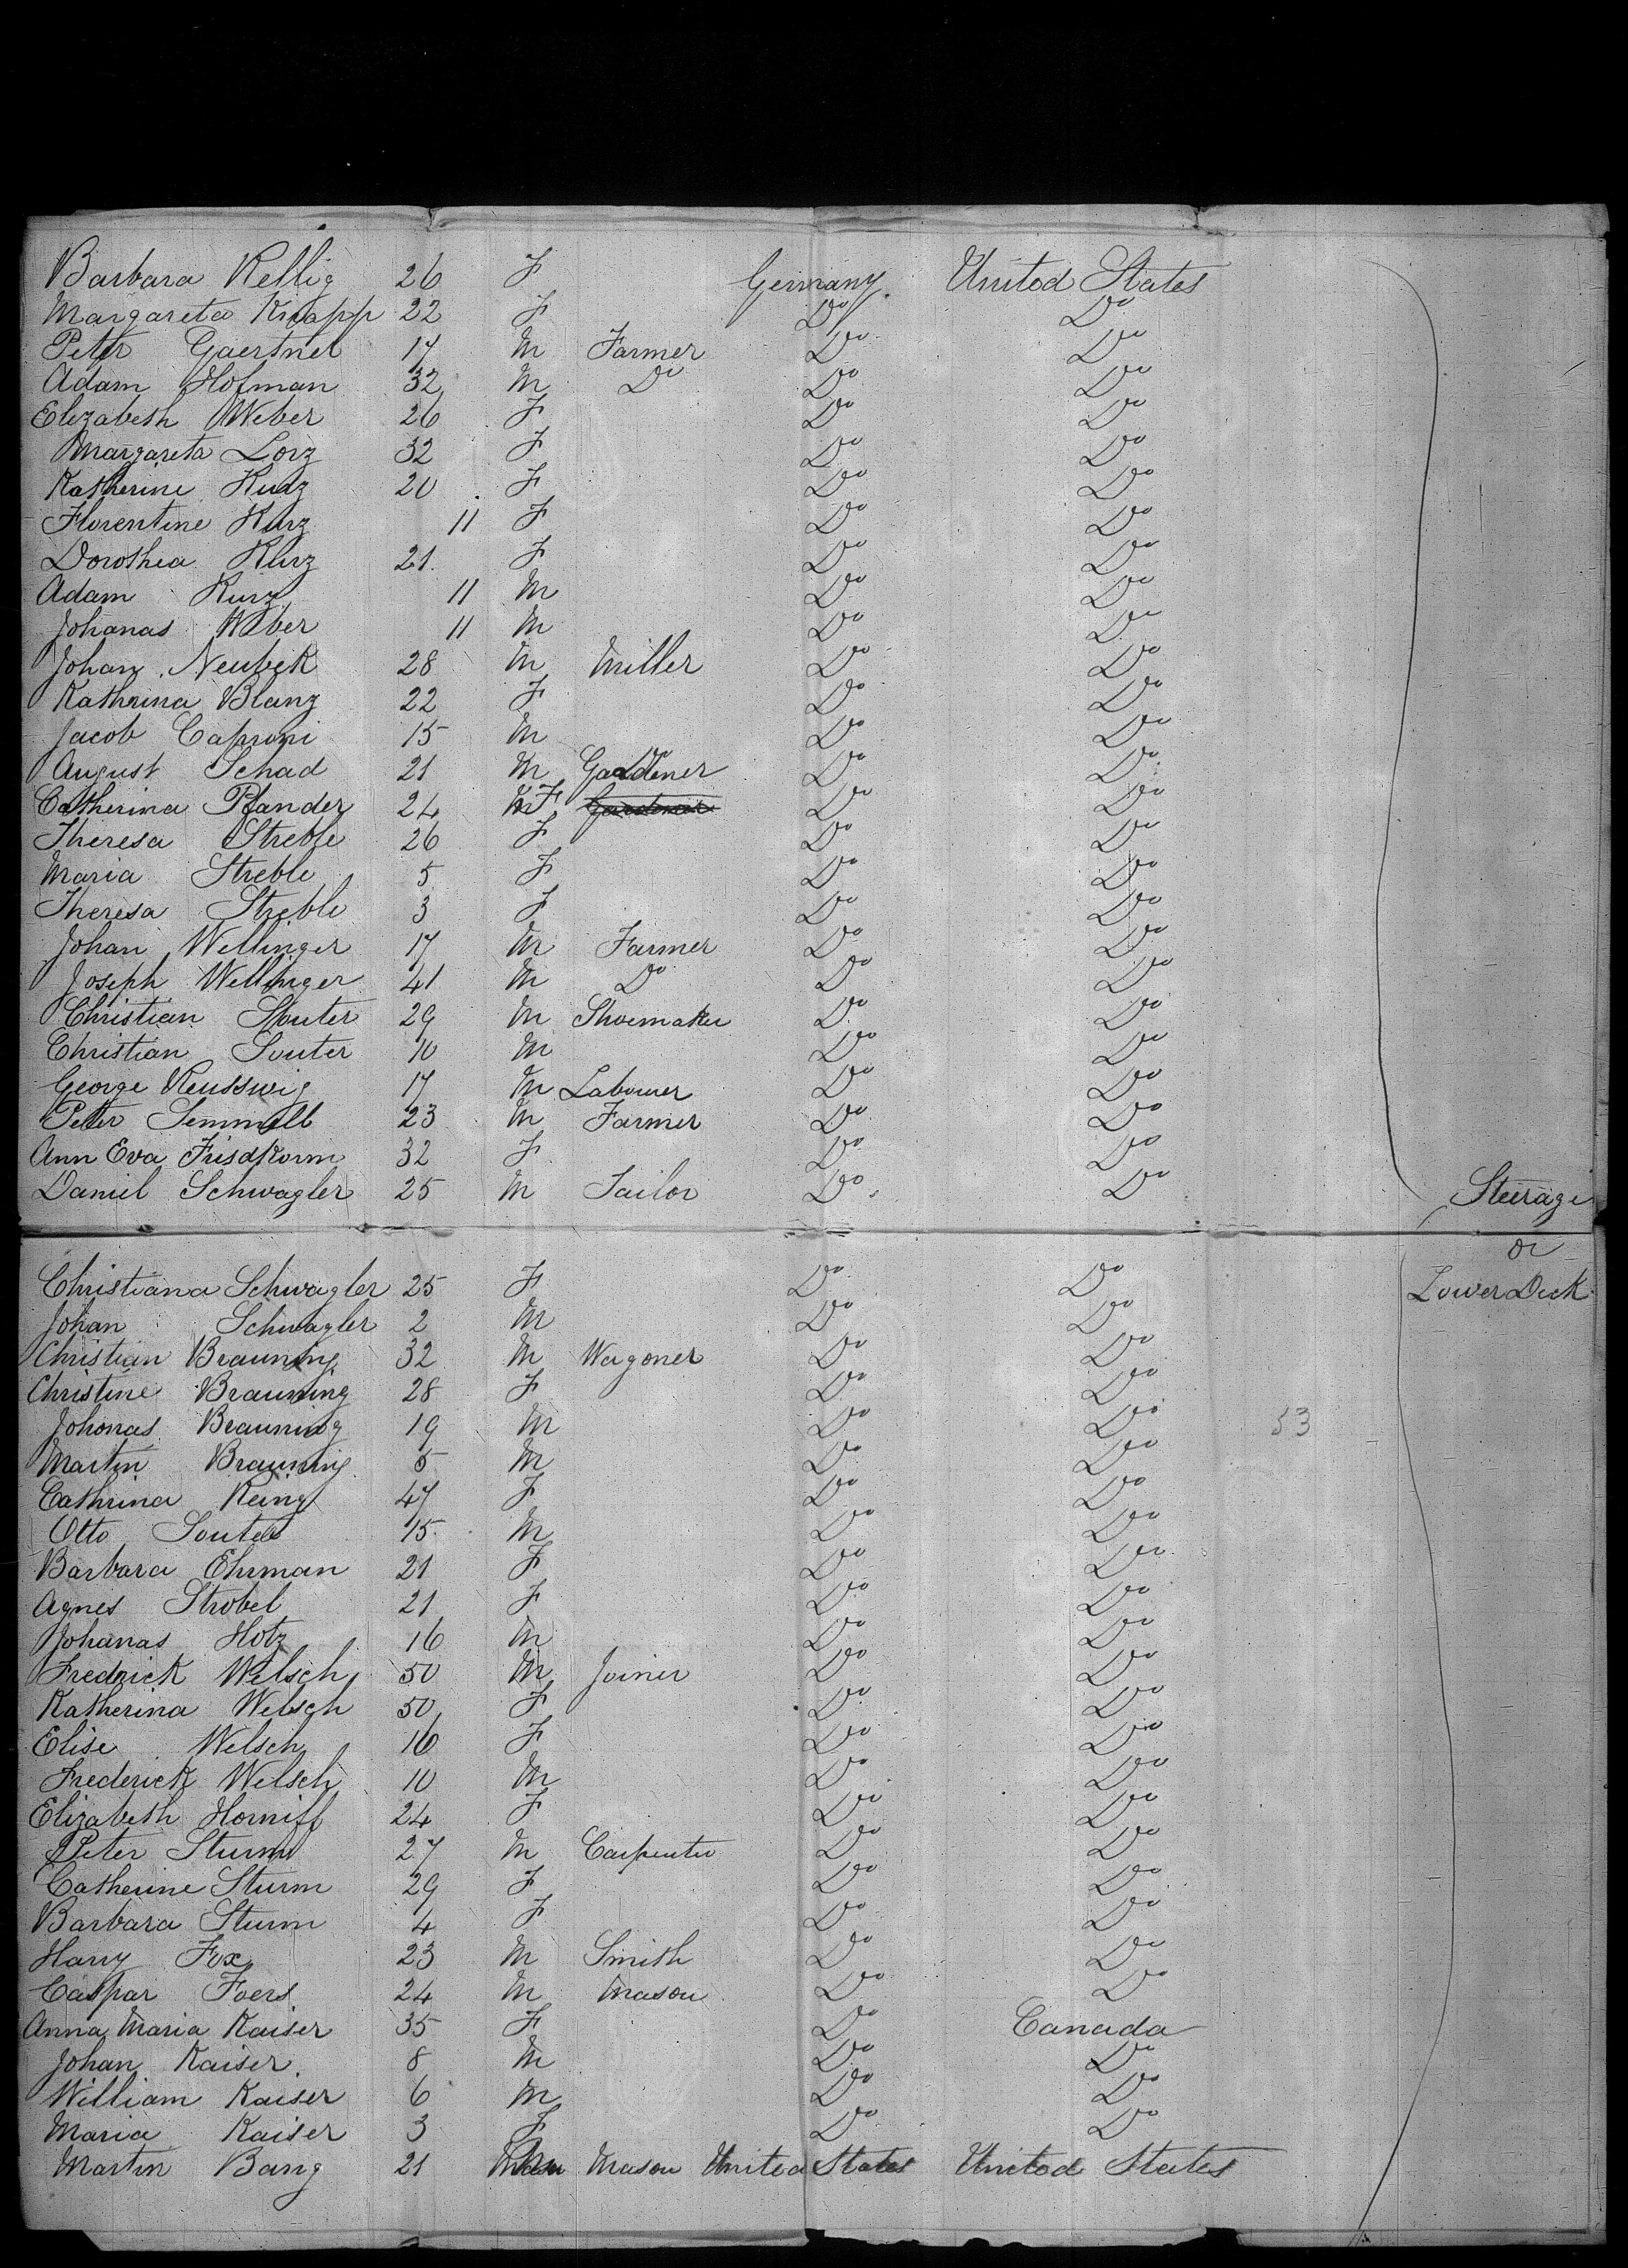 Barbara Rellig 26 F Germany United States
Margareta Knapp 22 F Do Do
Peter Gaertner 17 M Farmer Do Do
Adam Hofman 32 M Do Do Do
Elizabeth Weber 26 F Do Do
Margareta Lorz 32 F Do Do
Katherine Kurz 20 F Do Do
Florentine Kurz 11 F Do Do
Dorothea Kurz 21 F Do Do
Adam Kurz 11 M Do Do
Johanas Weber 11 M Do Do
Johan Neubek 28 M Miller Do Do
Kathrina Blanz 22 F Do Do
Jacob Caproni 15 M Do Do
August Schad 21 M Gardener Do Do
Catherina Pfander 24 F Gardener Do Do
Theresa Streble 26 F Do Do
Maria Streble 5 F Do Do
Theresa Streble 3 F Do Do
Johan Wellinger 17 M Farmer Do Do
Joseph Wellinger 41 M Do Do Do
Christian Souter 29 M Shoemaker Do Do
Christian Souter 10 M Do Do
George Reusswig 17 M Labourer Do Do
Peter Semmell 23 M Farmer Do Do
Ann Eva Frisdkorm 32 F Do Do
Daniel Schwagler 25 M Tailor Do Do Steerage
or
Christiana Schwagler 25 F Do Do Lower Deck
Johan Schwagler 2 M Do Do
Christian Brauning 32 M Wagoner Do Do
Christine Brauning 28 F Do Do
Johonas Brauning 19 M Do Do 53
Martin Brauning 5 M Do Do
Cathrina Reing 47 F Do Do
Otto Souter 15 M Do Do
Barbara Ehrman 21 F Do Do
Agnes Strobel 21 F Do Do
Johanas Hotz 16 M Do Do
Fredrick Welsch 50 M Joiner Do Do
Katherina Welsch 50 F Do Do
Elise Welsch 16 F Do Do
Frederick Welsch 10 M Do Do
Elizabeth Horniff 24 F Do Do
Peter Sturm 27 M Carpenter Do Do
Catherine Sturm 29 F Do Do
Barbara Sturm 4 F Do Do
Harry Fox 23 M Smith Do Do
Caspar Foers 24 M Mason Do Do
Anna Maria Kaiser 35 F Do Canada
Johan Kaiser 8 M Do Do
William Kaiser 6 M Do Do
Maria Kaiser 3 F Do Do
Martin Bang 21 M Mason United States United States